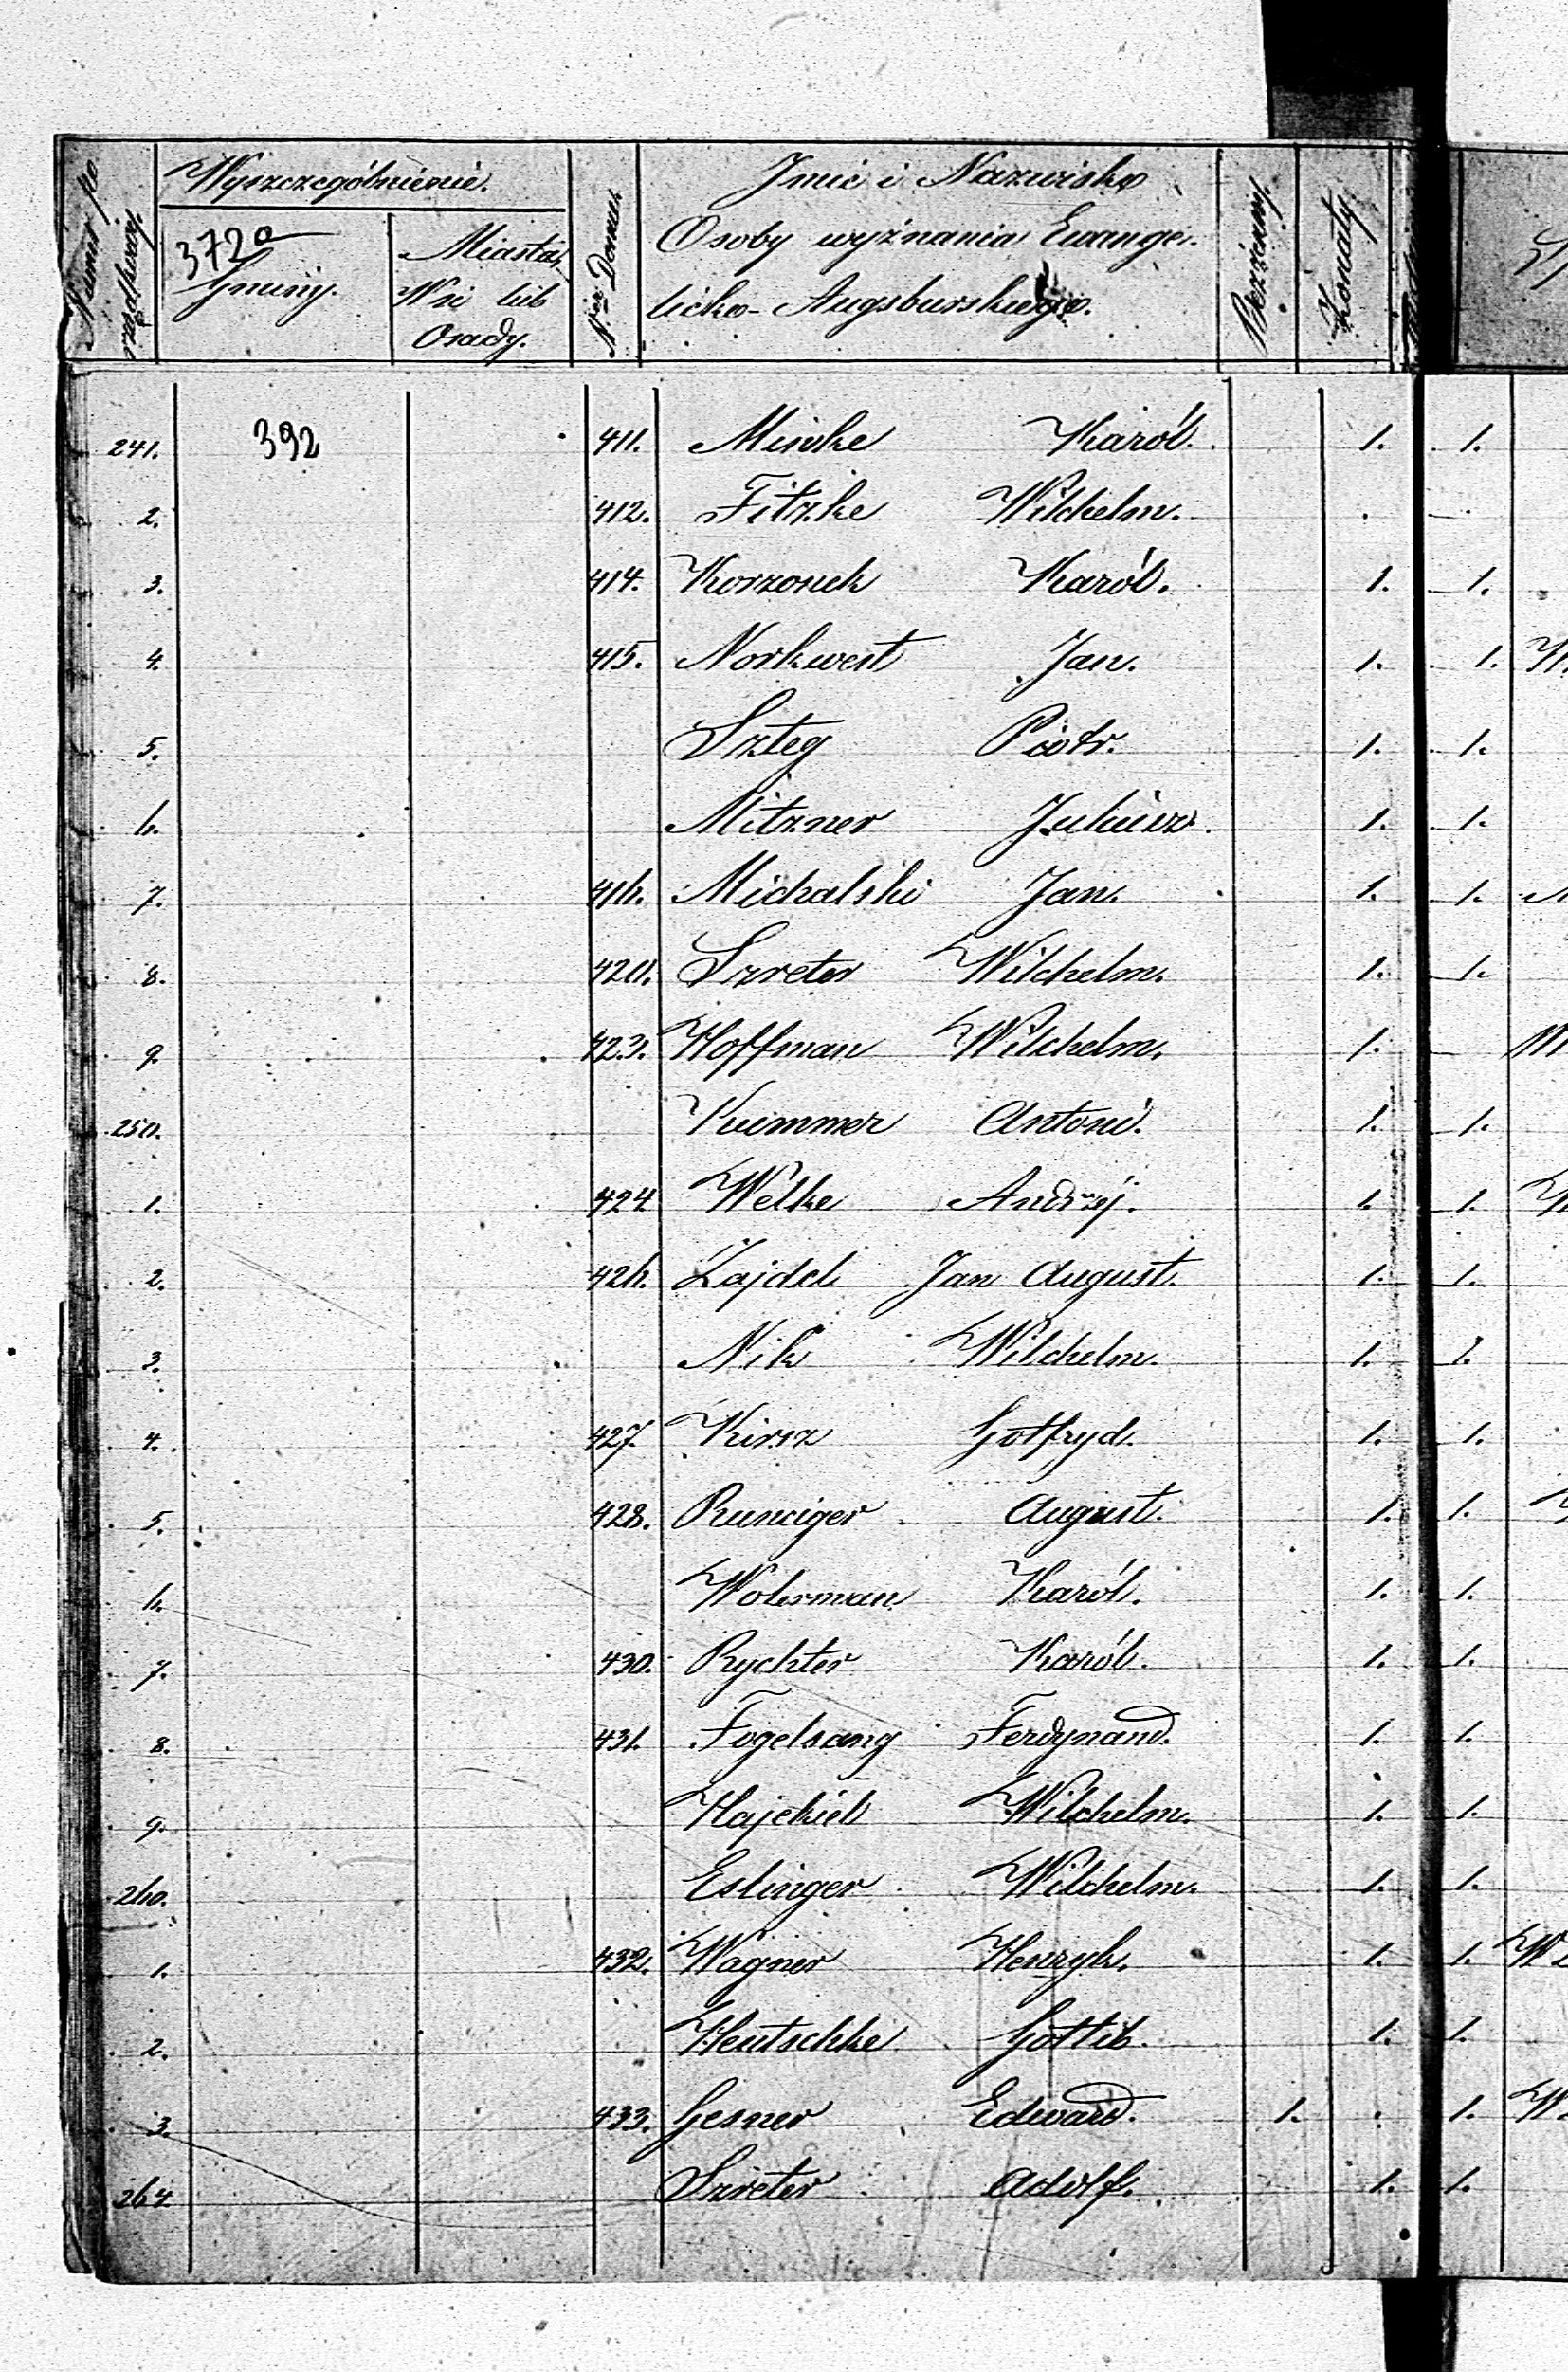 Numer po rządkowy
Wyszczególnienie.
372a
Gminy.
Miasta,
Wsi lub
Osady.
Nr Domu.
Imie i Nazwisko
Osoby wyznania Ewange-
licko-Augsburskiego.
Bezżenny.
Żonaty
241. 392 411. Minke Karól. 1. 1.
2. 412. Fitzke Wilchelm.
3. 414. Korzonek Karól. 1. 1.
4. 415. Norkwest Jan. 1. 1.
5. Szteg Piotr. 1. 1.
6. Mitzner Juliusz. 1. 1.
7. 416. Michalski Jan. 1. 1.
8. 420. Szreter Wilchelm. 1. 1.
9. 423. Hoffman Wilchelm. 1.
250. Kummer Antoni. 1. 1.
1. 424 Welke Andrzéj. 1. 1.
2. 426. Zajdel Jan August. 1. 1.
3. Nik Wilchelm. 1. 1.
4. 427. Kirsz Gotfryd. 1. 1.
5. 428. Runciger August. 1. 1.
6. Wolsman Karól. 1. 1.
7. 430. Rychter Karól. 1. 1.
8. 431. Fogelsang Ferdynand. 1. 1.
9. Hajckiel Wilchelm. 1. 1.
260. Eslinger Wilchelm. 1. 1.
1. 432. Wagner Henryk. 1. 1.
2. Hentschke Gottlib. 1. 1.
3. 433. Gesner Edward. 1. 1.
264 Szreter Adolf. 1. 1.